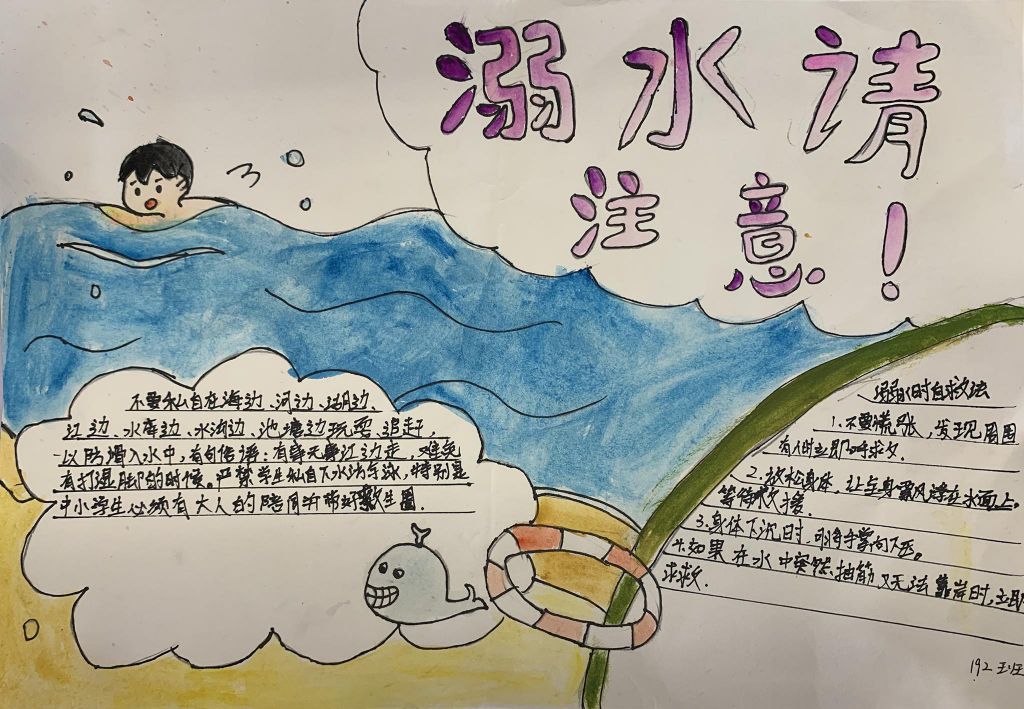 溺水请
注意！
不要私自在海边、河边、湖边、
江边、水库边、水沟边、池塘边玩耍、追赶，
以防滑入水中，有句传语：有事无事江边走，难免
有打湿脚的时候。严禁学生私自下水访泳，特别是
中小学生必须有大人的陪同并带好救生圈．
溺水时自救法
1.不要慌张，发现周围
有人时立即呼求夕．
2.放松身体，让全身飘风浮在水面上。
等待救援．
3.身体下沉时，可将手掌向下压。
4.如果在水中突然抽筋又无法靠岸时，立即
求救．
192